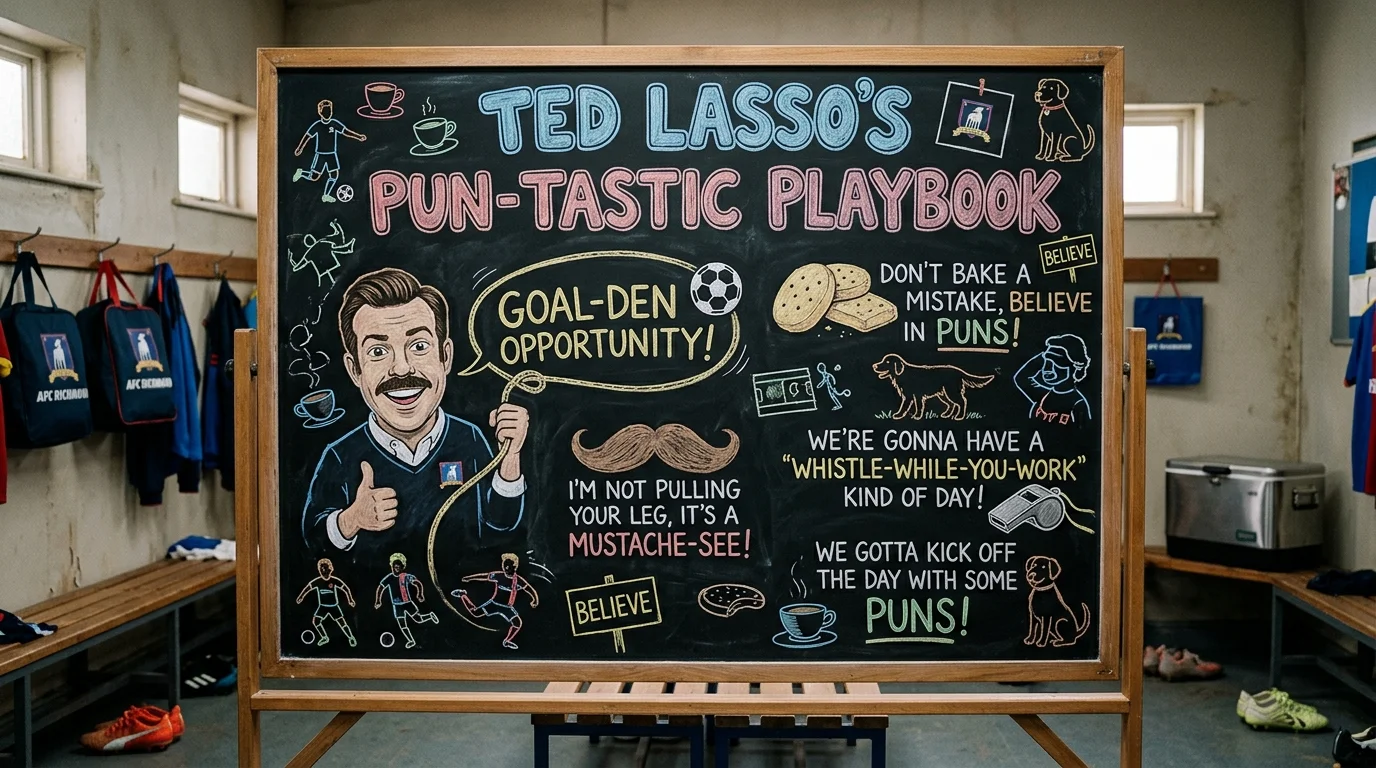 TED LASSO'S
PUN-TASTIC PLAYBOOK
GOAL-DEN
OPPORTUNITY!
DON'T BAKE A
MISTAKE, BELIEVE
IN PUNS!
BELIEVE
I'M NOT PULLING
YOUR LEG, IT'S A
MUSTACHE-SEE!
WE'RE GONNA HAVE A
"WHISTLE-WHILE-YOU-WORK"
KIND OF DAY!
WE GOTTA KICK OFF
THE DAY WITH SOME
PUNS!
BELIEVE
AFC RICHMOND